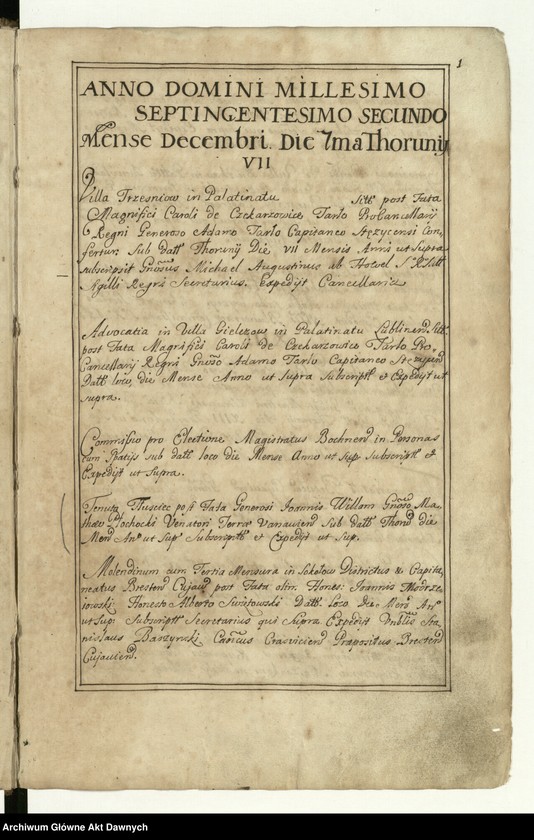 1
ANNO DOMINI MILLESIMO
SEPTINGENTESIMO SECUNDO
Mense Decembri. Die 7ma Thorunij
VII
Villa Trzesniow in Palatinatu Sitt post Fata
Magnifici Caroli de Czekarzowice Tarło ProCancellarij
Regni Generoso Adamo Tarło Capitaneo Stęzycensi Con
fertur. Sub datt Thorunij Die VII Mensis Anni ut Supra
subscripsit Michael Augustinus ab
Sigilli Regni Secretarius. Expedijt Cancellaria
Advocatia in Villa Gielezow in Palatinatu Lublinen Sitt
post Fata Magnifici Caroli de Czekarzowice Tarło Pro
Cancellarij Regni Gnoso Adamo Tarło Capitaneo
Datt loco, die Mense Anno ut Supra Subscript et Expedijt ut
supra.
Commissio pro Electione Magistratus Bochnen in Personas
cum Spatijs sub datt loco die Mense Anno ut sup Subscript et
Expedijt ut Supra.
Tenuta Tłusciec post Fata Generosi Joannis Willam Gnoso Ma-
thæo Venatori Terræ Sub datt Thoru die
Men An ut Sup Subscript et Expedijt ut Sup.
Molendinum cum Tertia Mensura in Districtus & Capita
neatus Bresten Cujav post Fata olim Hones: Joannis Modrze
jowski Honesto Alberto Datt Loco Die Mens An
ut Sup: Subscript Secretarius qui Supra. Expedijt Sta
nislaus Cancus Cracvicien Præpositus Bresten
Cujavien.